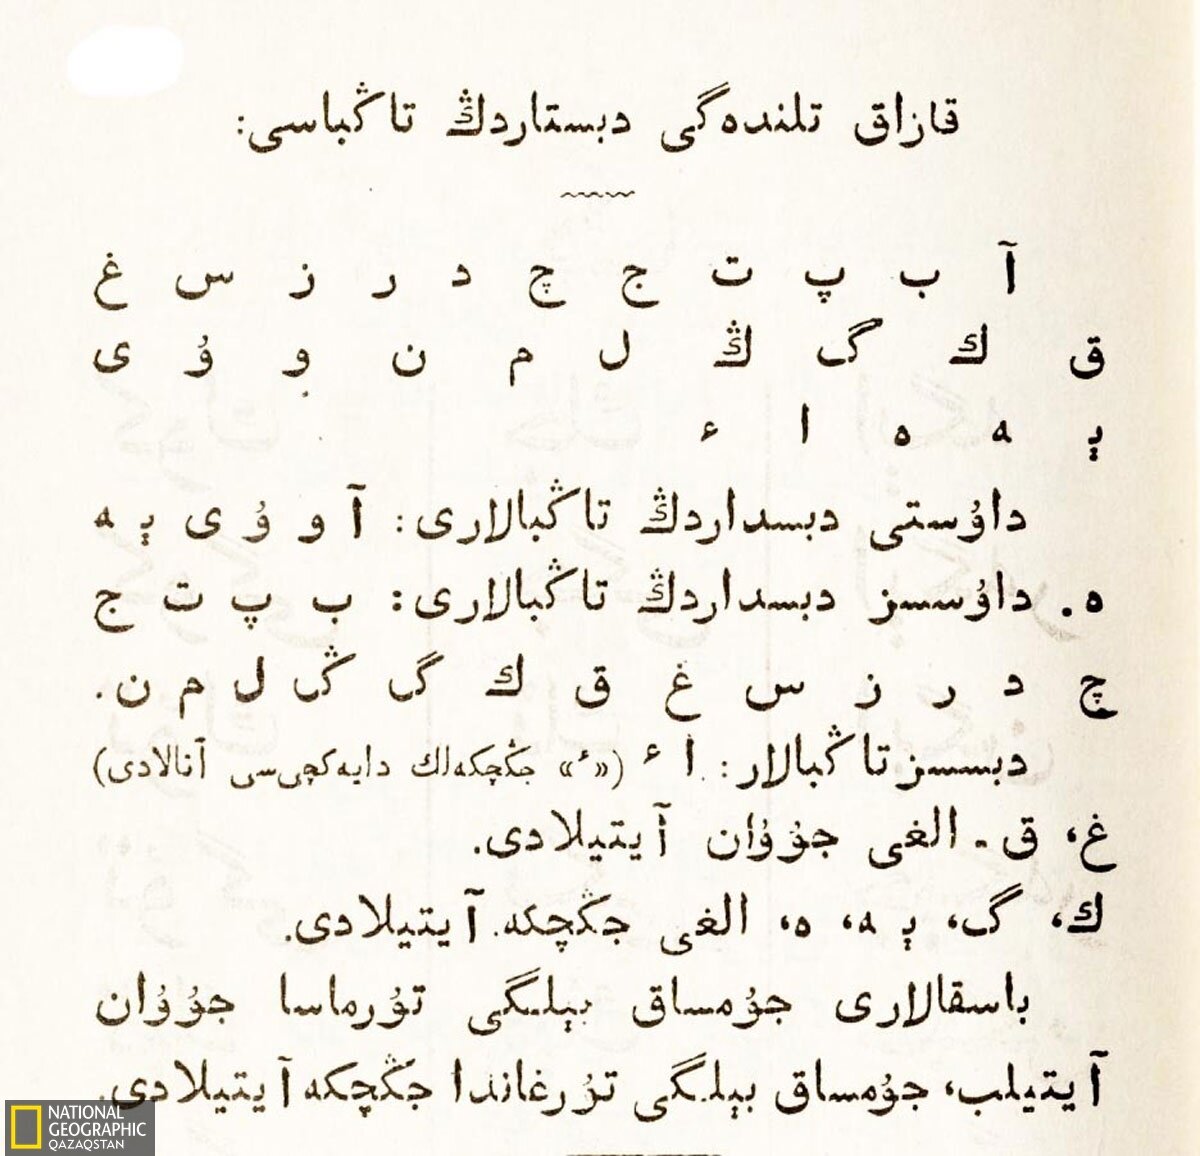 قازاق تلندەگی دبستاردڭ تاڭباسی:
آ ب پ ت ج چ د ر ز س غ
ق ك گ ڭ ل م ن و ۇ ی
ې ﻪ ە ا ء
داۇستی دبسداردڭ تاڭبالاری: آ و ۇ ی ې ﻪ
ە. داۇسسز دبسداردڭ تاڭبالاری: ب پ ت ج
چ د ر ز س غ ق ك گ ڭ ل م ن.
دبسسز تاڭبالار: ا ء («ء» جڭچكەلك دایەكچی‌سی آنالادی)
غ، ق - الغی جۇۋان آیتیلادی.
ك، گ، ې ﻪ، ە، الغی جڭچكە آیتیلادی.
باسقالاری جۇمساق بېلگی تۇرماسا جۇۋان
آیتیلب، جۇمساق بېلگی تۇرغاندا جڭچكە آیتیلادی.
NATIONAL
GEOGRAPHIC
QAZAQSTAN